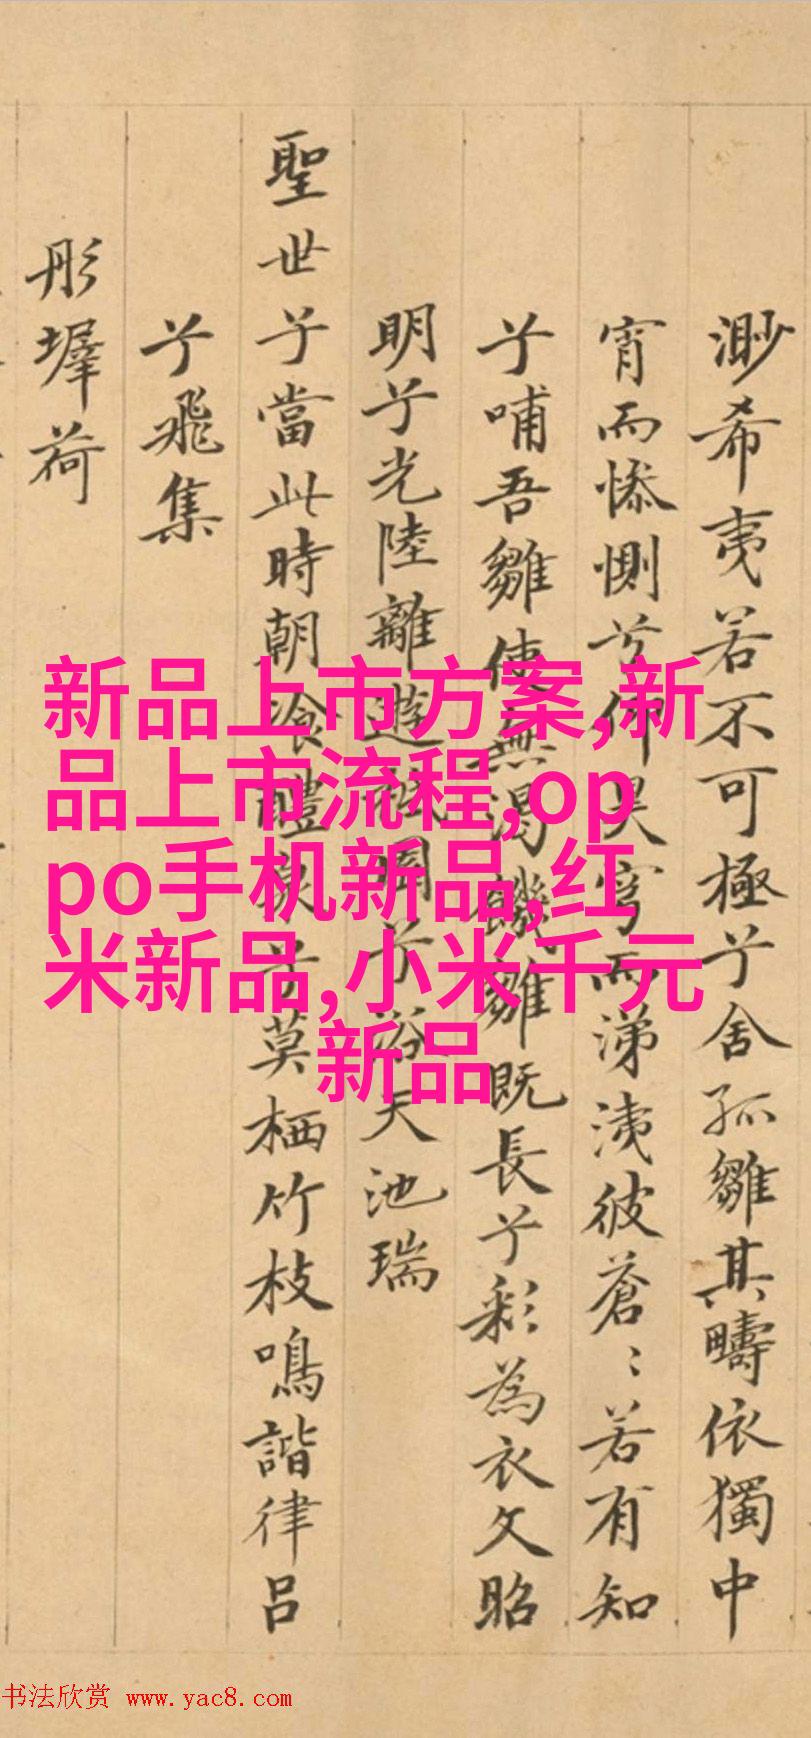 渺希夷若不可極兮舍孤雛其疇依獨中
宵而惨惻兮仰昊穹而涕洟彼蒼〻若有知
兮哺吾雛使無渴饑雛既長兮彩為衣文昭
明兮光陸離遊兮浴天池瑞
聖世兮當此時朝飡醴泉兮莫栖竹枝鳴諧律吕
兮飛集
彤墀荷
新品上市方案,新
品上市流程,op
po手机新品,红
米新品,小米千元
新品
书法欣赏 www.yac8.com